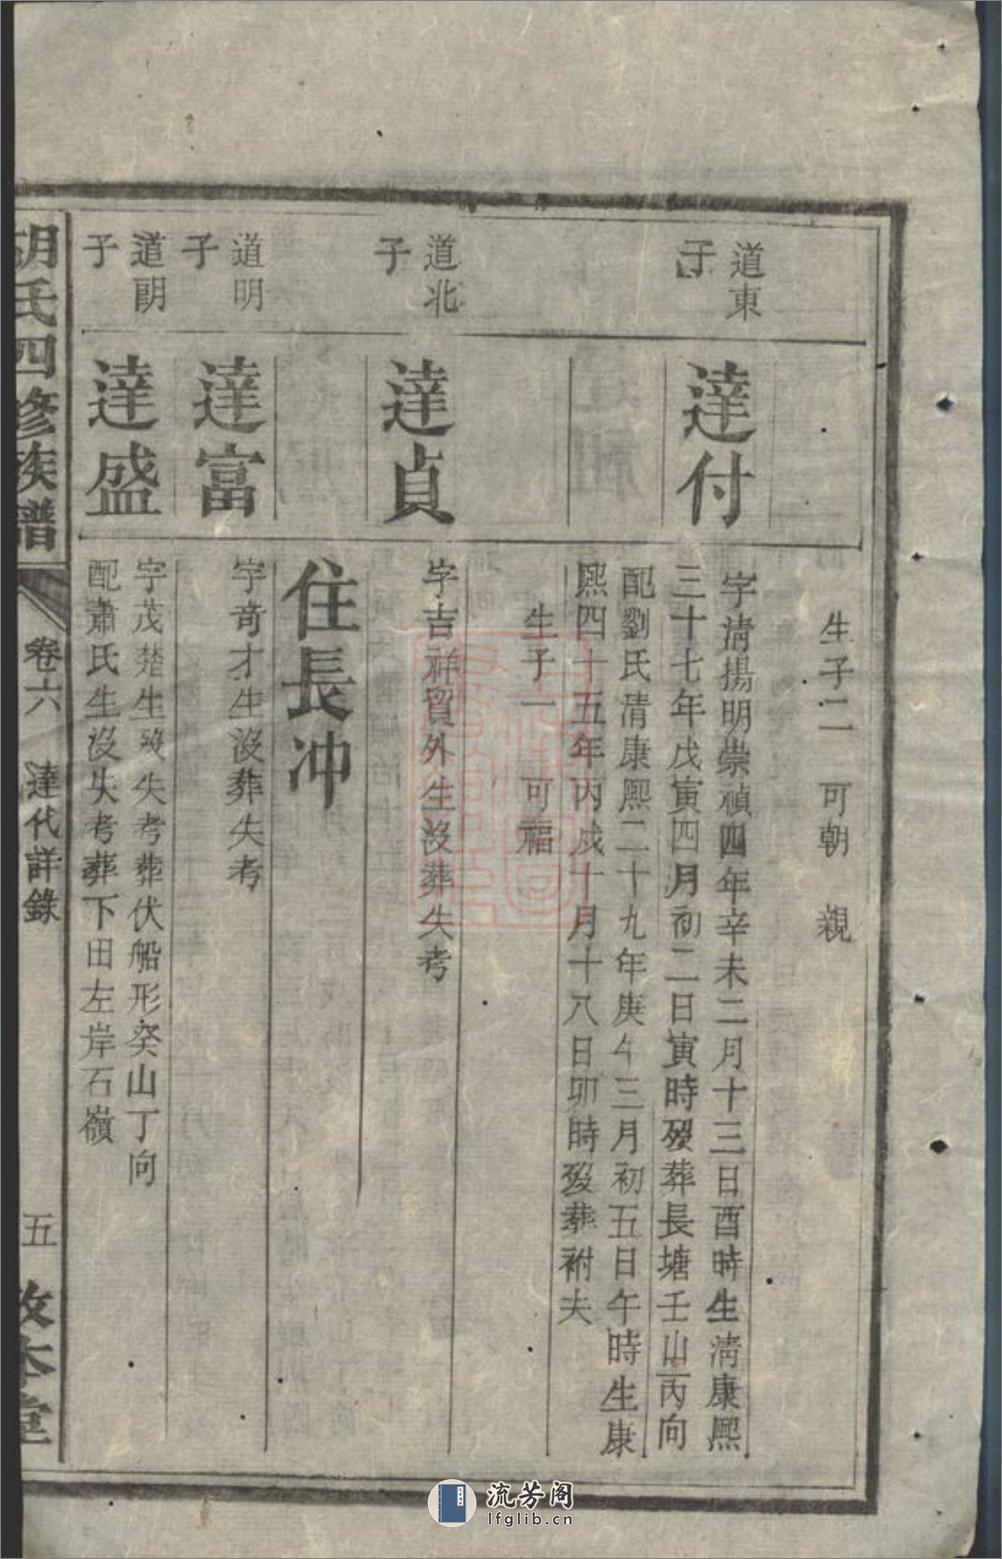 生子二 可朝 親
道東子
達付
字清揚明崇禎四年辛未二月十三日酉時生清康熙
三十七年戊寅四月初二日寅時歿葬長塘壬山丙向
配劉氏清康熙二十九年庚午三月初五日午時生康
熙四十五年丙戍十月十八日卯時歿葬祔夫
生子一 可福
道北子
達貞
字吉祥貿外生沒葬失考
住長冲
道明子
達富
字奇才生沒葬失考
道朗子
達盛
字茂楚生歿失考葬伏船形癸山丁向
配蕭氏生沒失考葬下田左岸石嶺
胡氏四修族譜
卷六 達代詳錄
五
流芳阁
lfglib.cn